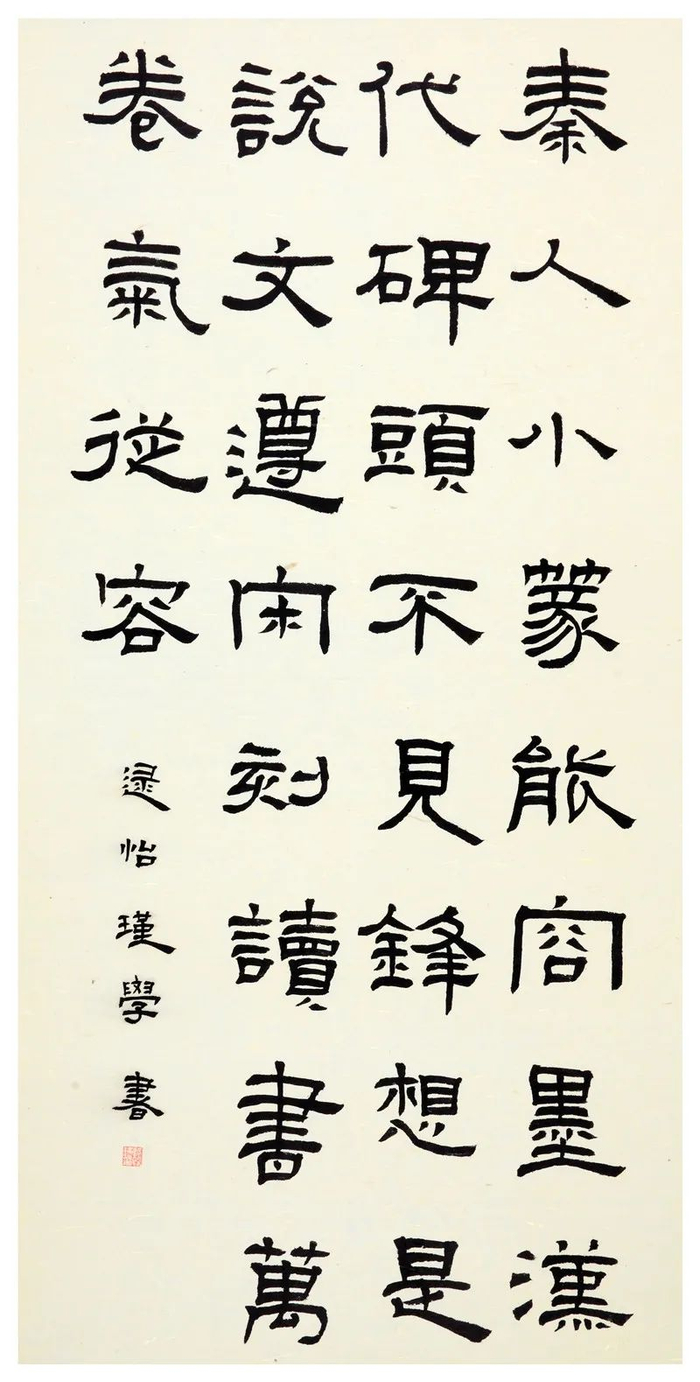 秦人小篆能容墨漢
代碑頭不見鋒想是
說文遵宋刻讀書萬
卷氣從容
逯怡瑾學書